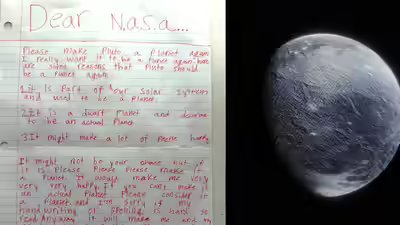 Dear N.a.s.a...
Please make Pluto a planet again
I really want it to be a planet again here
are some reasons that Pluto should
be a Planet again
1 it is Part of our Solar System
and used to be a Planet
2 It is a dwarf Planet and deserve
to be an actual Planet
3 It might make a lot of People happy
It might not be your choice but if
it is Please Please Please make it
a Planet. It would make me very
very very happy. If you can't make it
an actual Planet Please consider it
a Planet. and I'm sorry if my
handwriting or spelling is hard to
read. Anyway it will make me and my